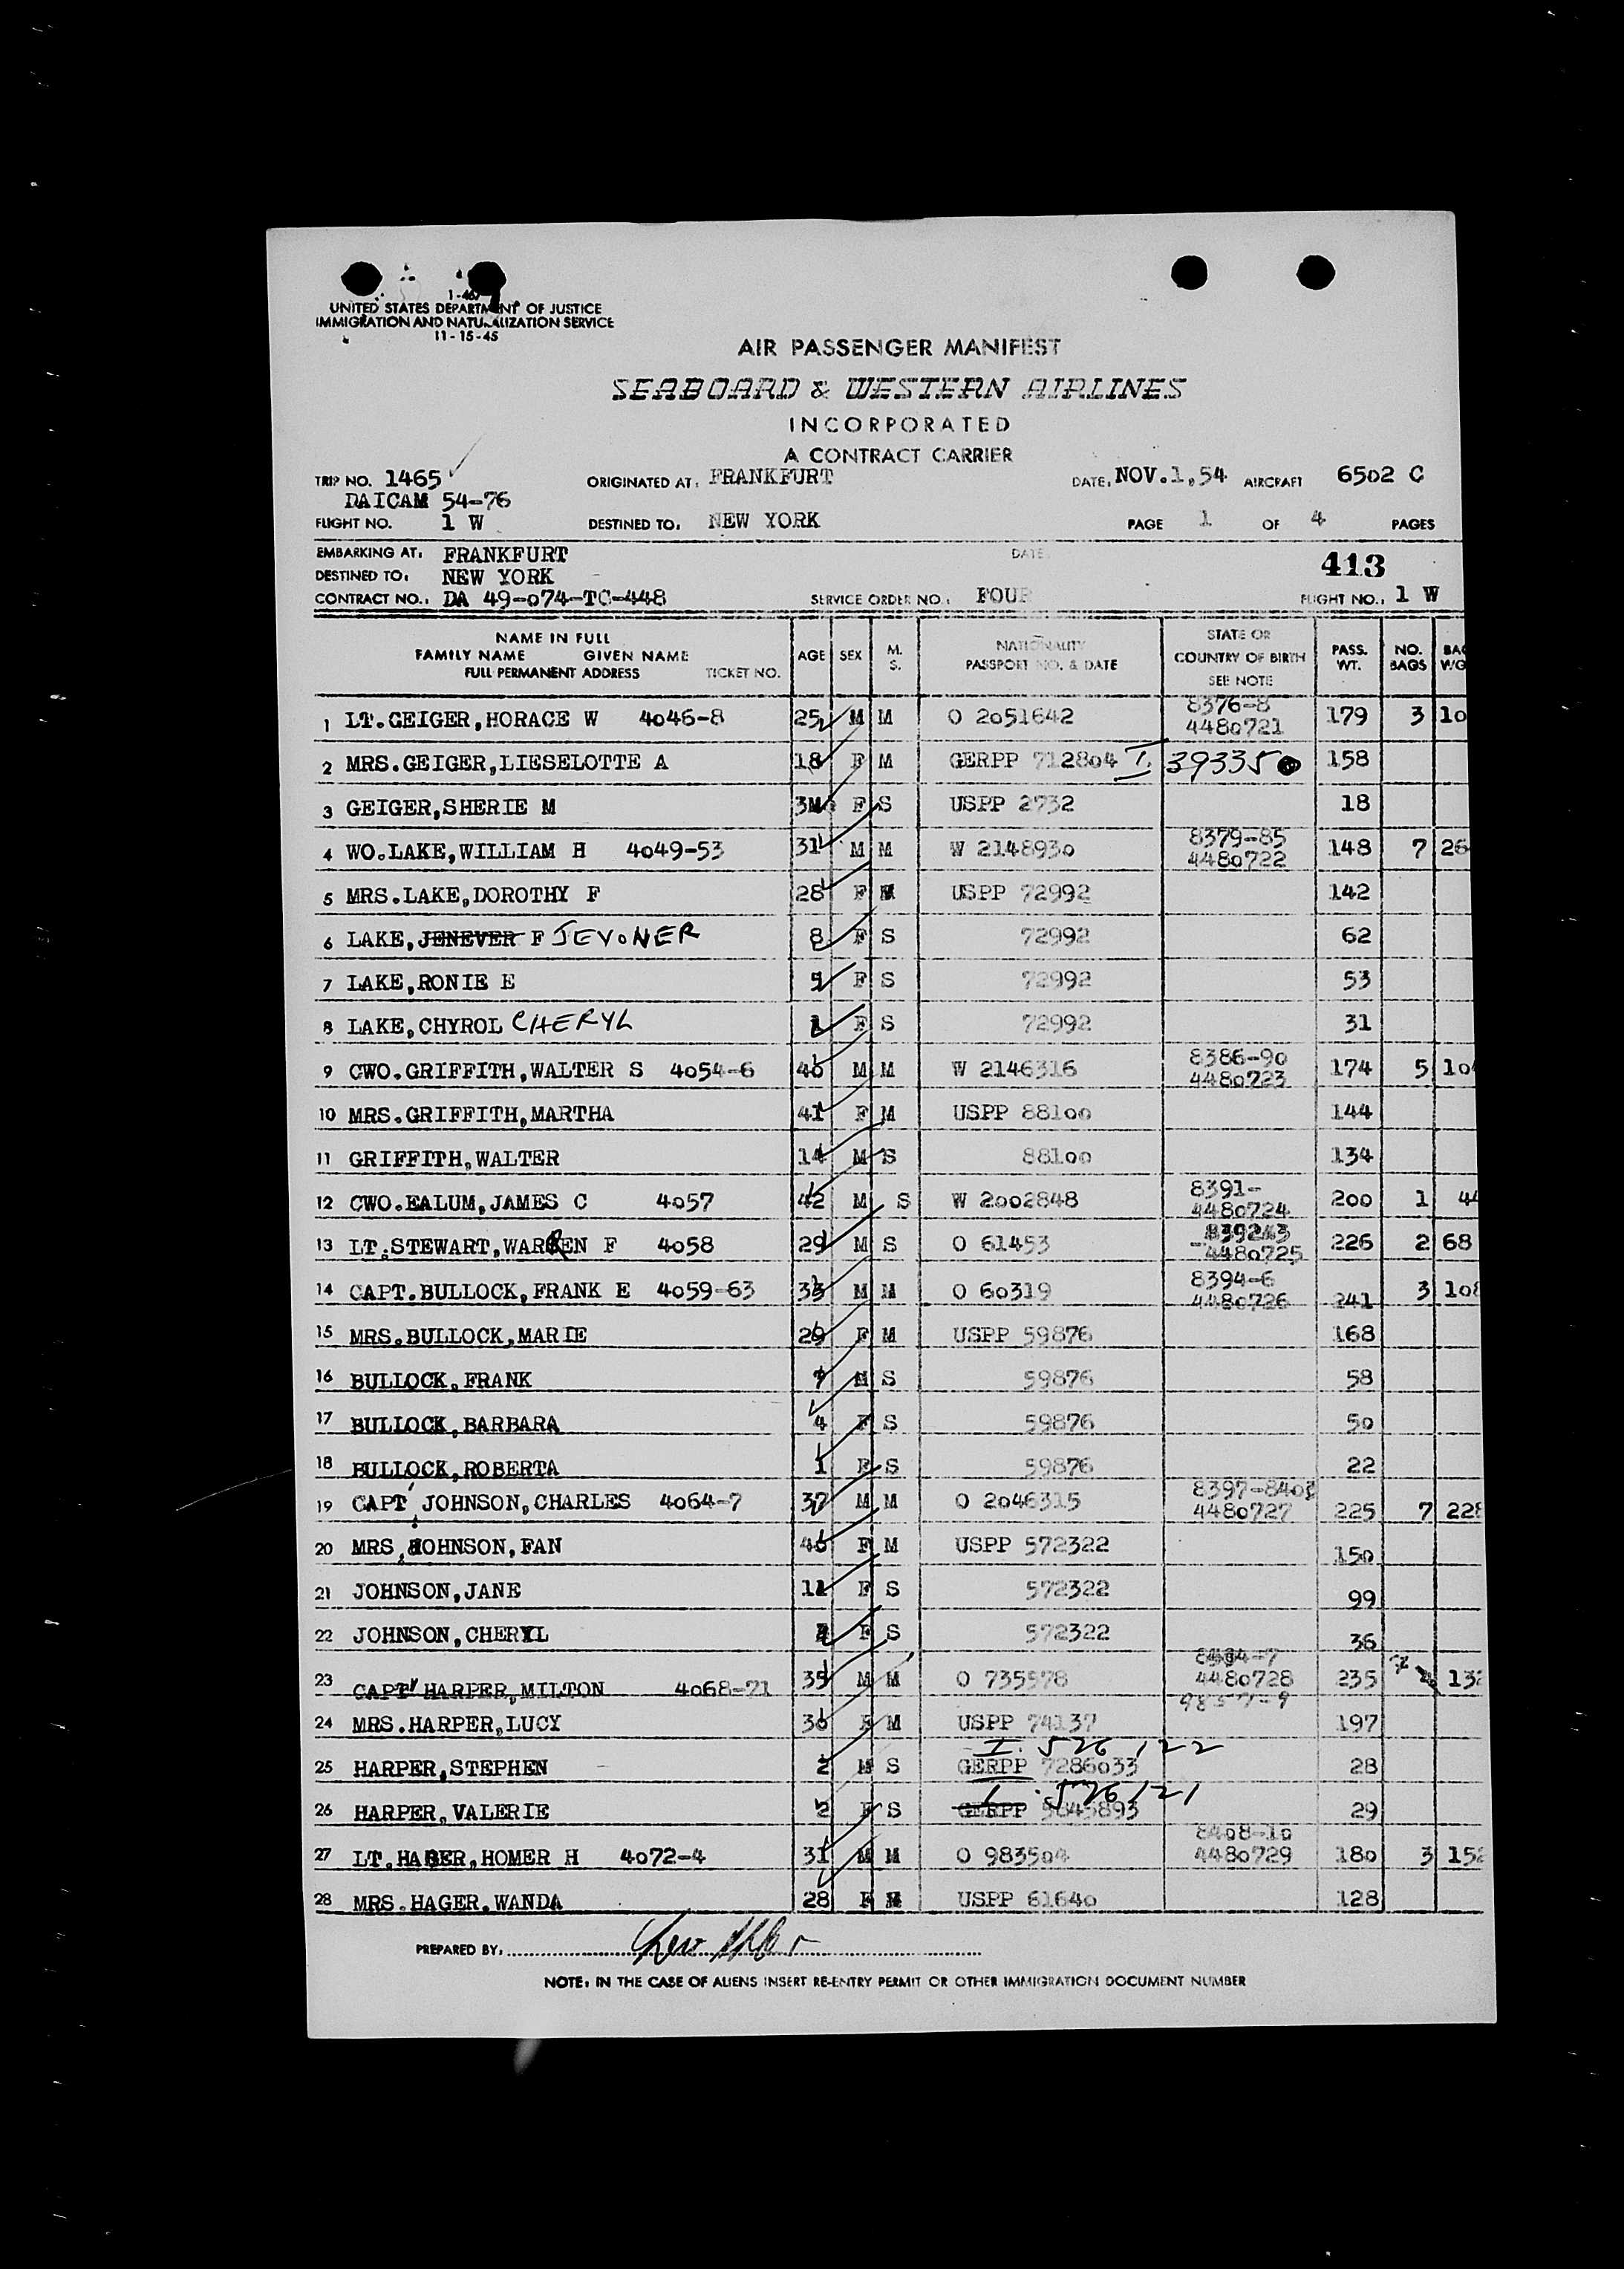 1-467
UNITED STATES DEPARTMENT OF JUSTICE
IMMIGRATION AND NATURALIZATION SERVICE
11-15-45
AIR PASSENGER MANIFEST
SEABOARD & WESTERN AIRLINES
INCORPORATED
A CONTRACT CARRIER
TRIP NO. 1465 ORIGINATED AT: FRANKFURT DATE: NOV.1,54 AIRCRAFT 6502 C
DAICAM 54-76
FLIGHT NO. 1 W DESTINED TO: NEW YORK PAGE 1 OF 4 PAGES
EMBARKING AT: FRANKFURT DATE: 413
DESTINED TO: NEW YORK
CONTRACT NO.: DA 49-074-TC-448 SERVICE ORDER NO.: FOUR FLIGHT NO.: 1 W
NAME IN FULL
FAMILY NAME GIVEN NAME
FULL PERMANENT ADDRESS TICKET NO. AGE SEX M. S. NATIONALITY PASSPORT NO. & DATE STATE OR COUNTRY OF BIRTH SEE NOTE PASS. WT. NO. BAGS BAG WG
1 LT.GEIGER,HORACE W 4046-8 25 M M O 2051642 8376-8 4480721 179 3 10
2 MRS.GEIGER,LIESELOTTE A 18 F M GERPP 712804 I. 393350 158
3 GEIGER,SHERIE M 3M F S USPP 2732 18
4 WO.LAKE,WILLIAM H 4049-53 31 M M W 2148930 8379-85 4480722 148 7 26
5 MRS.LAKE,DOROTHY F 28 F M USPP 72992 142
6 LAKE,JENEVER F JEVONER 8 F S 72992 62
7 LAKE,RONIE E 5 F S 72992 53
8 LAKE,CHYROL CHERYL 1 F S 72992 31
9 CWO.GRIFFITH,WALTER S 4054-6 40 M M W 2146316 8386-90 4480723 174 5 10
10 MRS.GRIFFITH,MARTHA 41 F M USPP 88100 144
11 GRIFFITH,WALTER 14 M S 88100 134
12 CWO.EALUM,JAMES C 4057 42 M S W 2002848 8391- 4480724 200 1 44
13 LT.STEWART,WARREN F 4058 29 M S O 61453 4480725 226 2 68
14 CAPT.BULLOCK,FRANK E 4059-63 33 M M O 60319 8394-6 4480726 241 3 108
15 MRS.BULLOCK,MARIE 29 F M USPP 59876 168
16 BULLOCK,FRANK 7 M S 59876 58
17 BULLOCK,BARBARA 4 F S 59876 50
18 BULLOCK,ROBERTA 1 F S 59876 22
19 CAPT JOHNSON,CHARLES 4064-7 37 M M O 2046315 8397-8403 4480727 225 7 228
20 MRS.JOHNSON,FAN 40 F M USPP 572322 150
21 JOHNSON,JANE 11 F S 572322 99
22 JOHNSON,CHERYL F S 572322 36
23 CAPT HARPER,MILTON 4068-71 35 M M O 735578 8404-7 4480728 235 7 132
9857-9
24 MRS.HARPER,LUCY 36 F M USPP 74137 197
I. 526122
25 HARPER,STEPHEN 2 M S GERPP 7286033 28
I. 526121
26 HARPER,VALERIE 2 F S GERPP 5645893 29
27 LT.HAGER,HOMER H 4072-4 31 M M O 983504 8408-10 4480729 180 3 152
28 MRS.HAGER,WANDA 28 F M USPP 61640 128
PREPARED BY:
NOTE: IN THE CASE OF ALIENS INSERT RE-ENTRY PERMIT OR OTHER IMMIGRATION DOCUMENT NUMBER